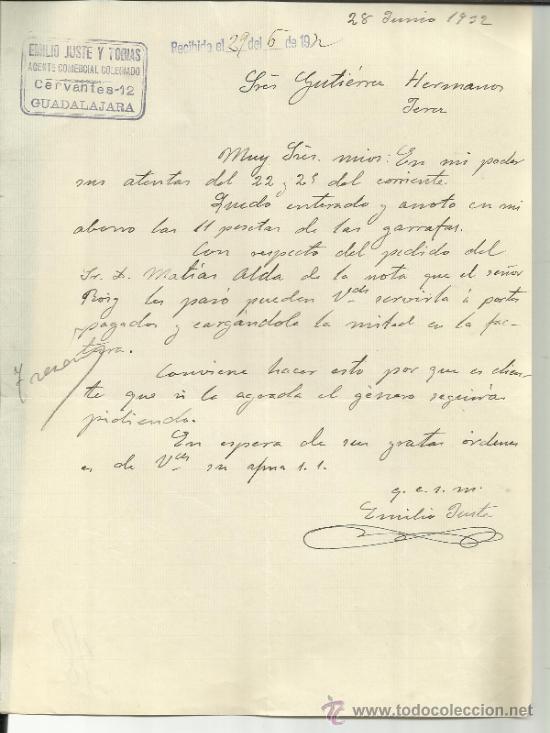 28 Junio 1932
EMILIO JUSTE Y TOBIAS
AGENTE COMERCIAL COLEGIADO
Cervantes-12
GUADALAJARA
Recibida el 29 del 6 de 1932
Sres Gutiérrez Hermanos
Jerez
Muy Sres. mios: En mi poder
sus atentas del 22 y 25 del corriente.
Quedo enterado y anoto en mi
abono las 11 pesetas de las garrafas.
Con respecto del pedido del
Sr. D. Matías Alda de la nota que el señor
Roig les pasó pueden Vdes servirla á portes
pagados y cargándola la mitad en la fac-
tura.
Conviene hacer esto por que es clien-
te que si le agrada el género seguirá
pidiendo.
En espera de sus gratas órdenes
es de Vdes su afmo s.s.
q.e.s.m.
Emilio Juste
www.todocoleccion.net